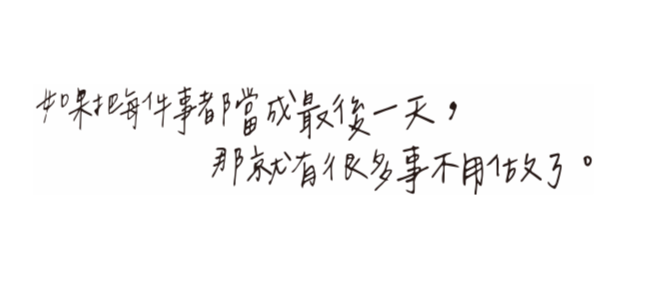 如果把每件事都當成最後一天，
那就有很多事不用做了。